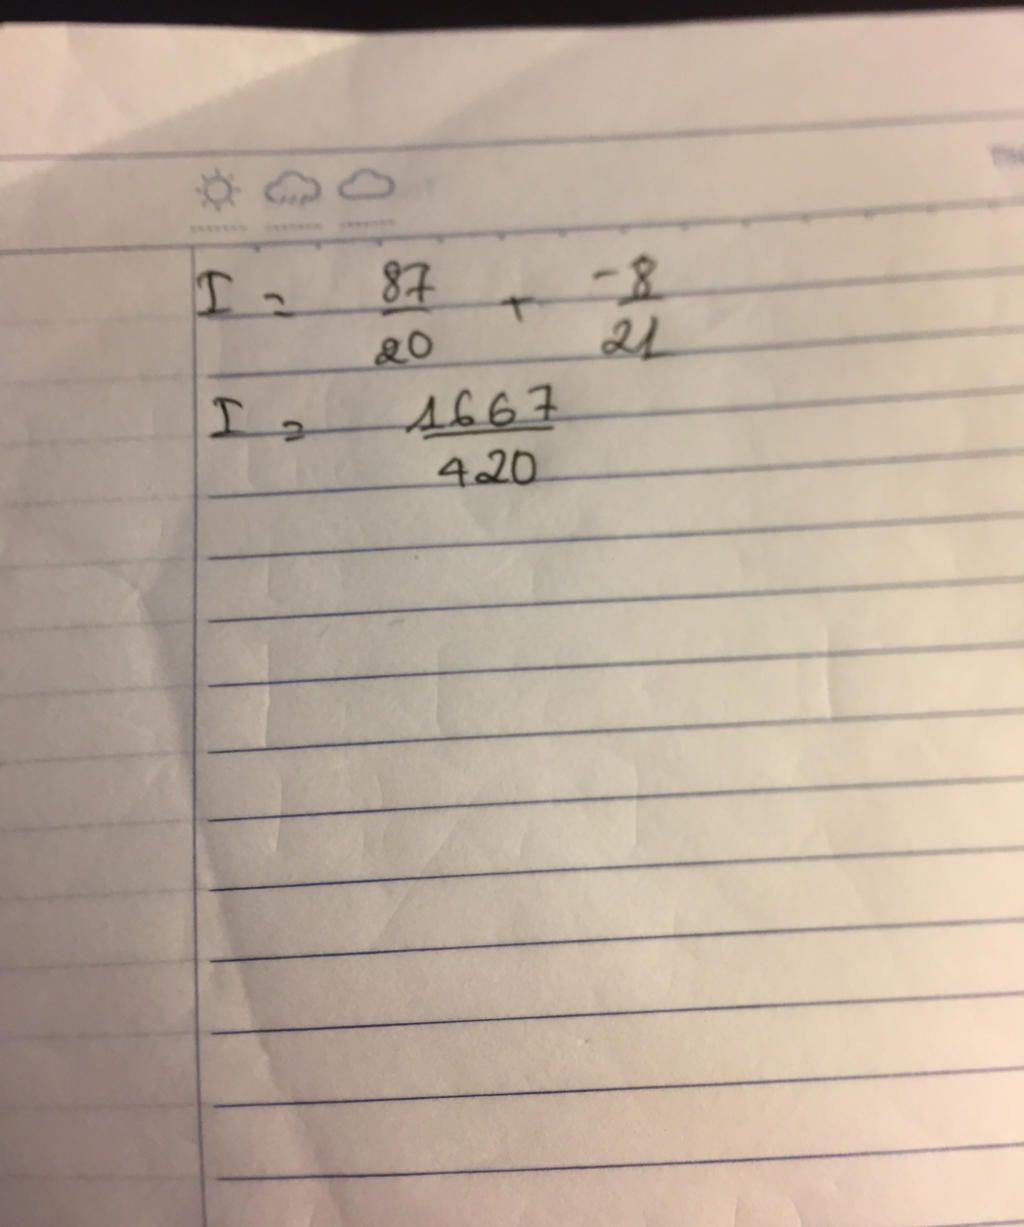 I = 87/20 + -8/21
I = 1667/420